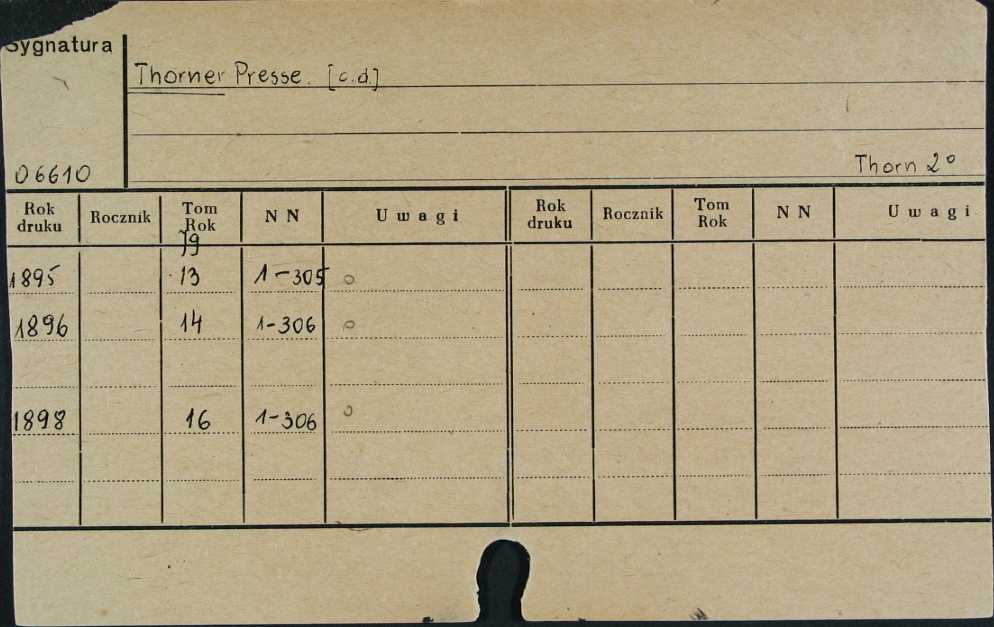 Sygnatura
Thorner Presse. [c.d.]
06610
Thorn 2°
Rok druku Rocznik Tom Rok NN Uwagi Rok druku Rocznik Tom Rok NN Uwagi
Jg
1895 13 1-305 o
1896 14 1-306 o
1898 16 1-306 o